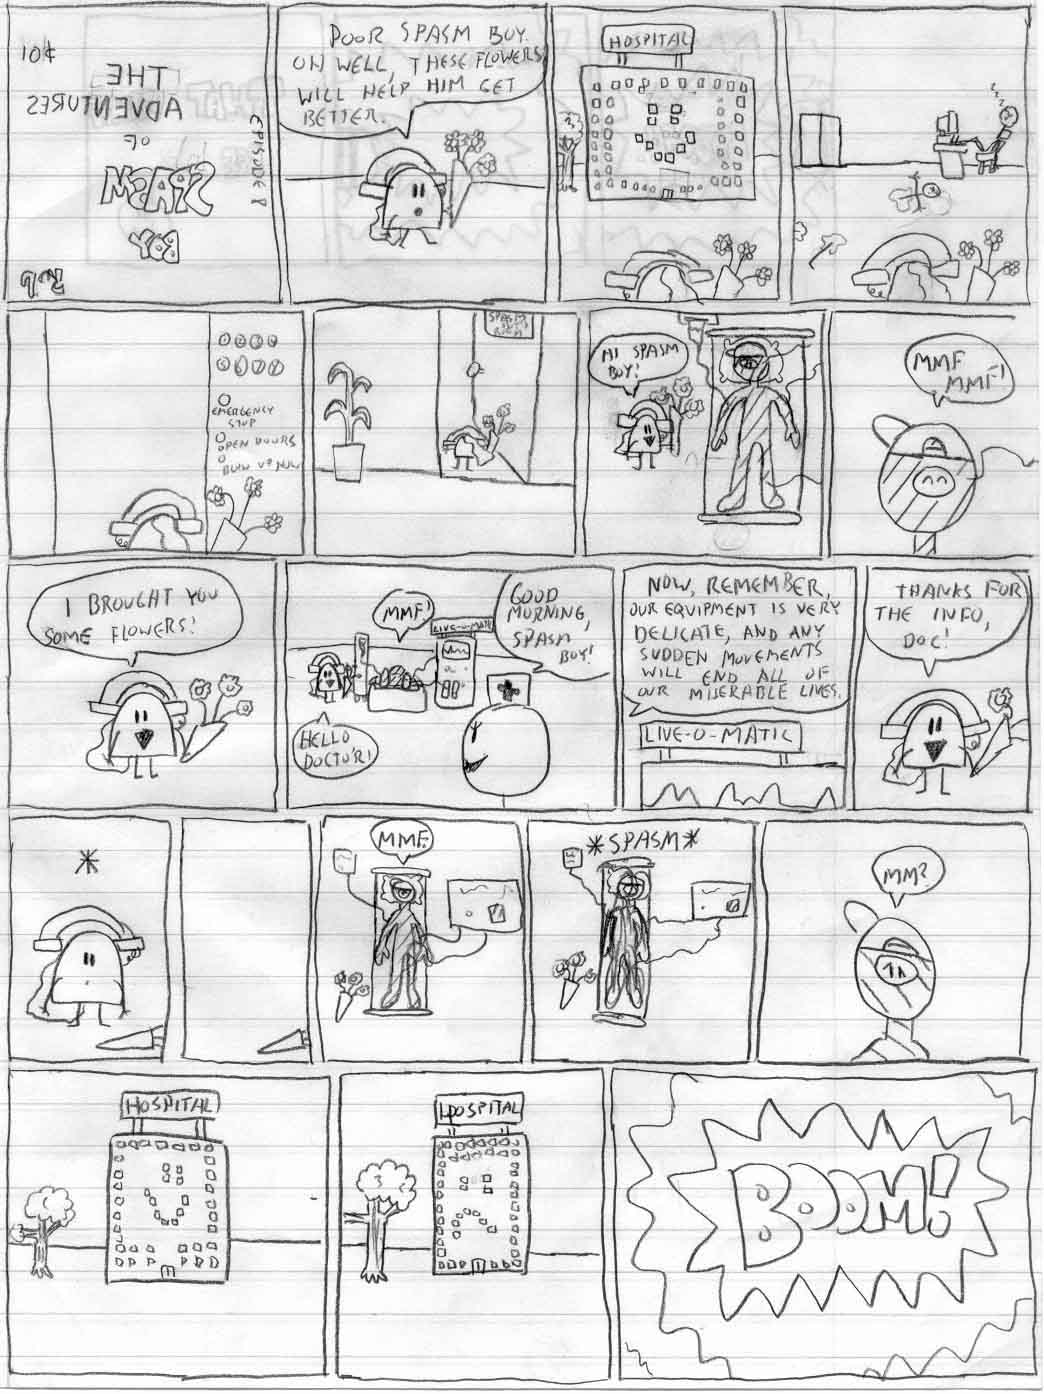 10¢
THE
ADVENTURES
OF
SPASM
BOY
EPISODE 8
POOR SPASM BOY.
OH WELL, THESE FLOWERS
WILL HELP HIM GET
BETTER.
HOSPITAL
EMERGENCY
STOP
OPEN DOORS
BLOW UP NOW
SPASM
BOY'S
ROOM
HI SPASM
BOY!
MMF
MMF!
I BROUGHT YOU
SOME FLOWERS!
MMF!
LIVE-O-MATIC
GOOD
MORNING,
SPASM
BOY!
HELLO
DOCTOR!
NOW, REMEMBER,
OUR EQUIPMENT IS VERY
DELICATE, AND ANY
SUDDEN MOVEMENTS
WILL END ALL OF
OUR MISERABLE LIVES.
LIVE-O-MATIC
THANKS FOR
THE INFO,
DOC!
MMF.
*SPASM*
MM?
HOSPITAL
HOSPITAL
BOOM!